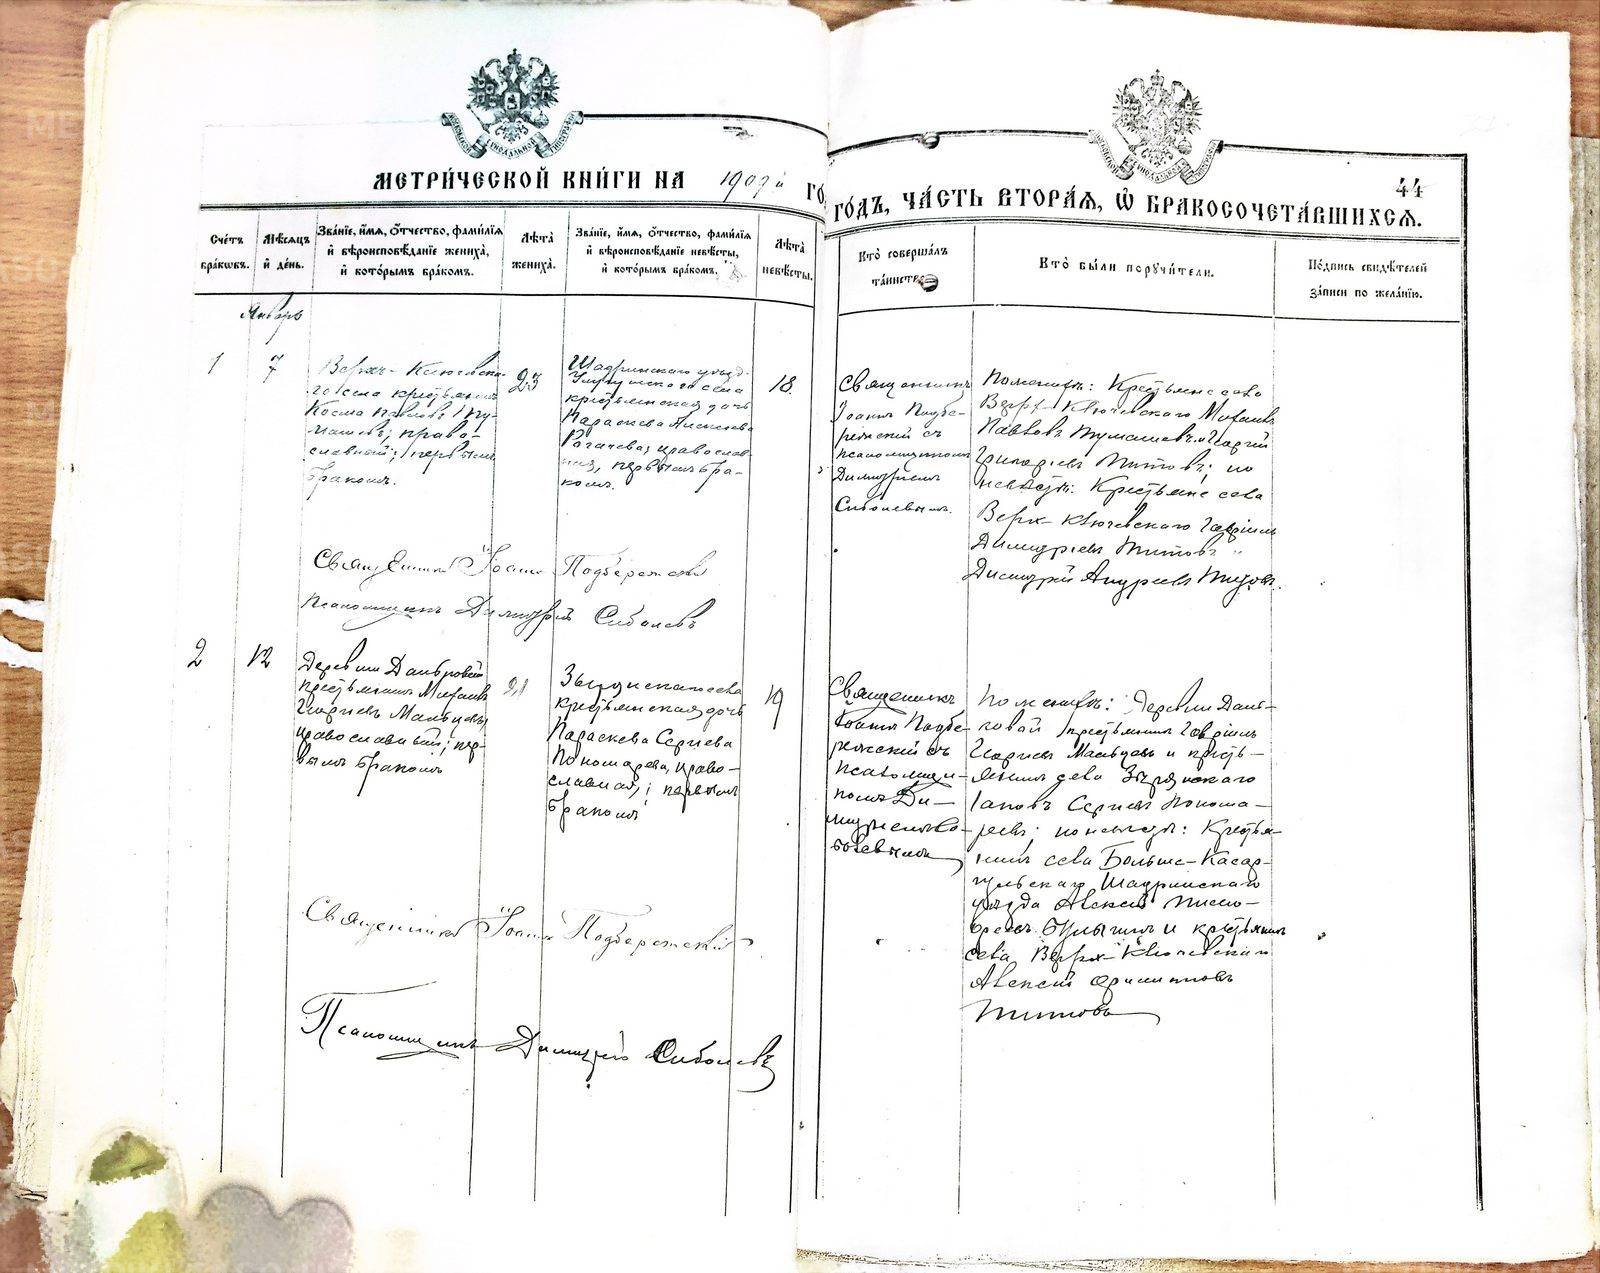 МЕТРИ́ЧЕСКОЙ КНИ́ГИ НА 1909й ГОДЪ, ЧА́СТЬ ВТОРА́Я, Ѽ БРАКОСОЧЕТА́ВШИХСЯ.
44
Сче́тъ
бра́ковъ.
Мѣ́сяцъ
и҆ де́нь.
Зва́ніе, и҆́мя, ѻ҆́тчество, фами́лія
и҆ вѣроисповѣ́даніе жениха̀,
и҆ кото́рымъ бра́комъ.
Лѣ́та
жениха̀.
Зва́ніе, и҆́мя, ѻ҆́тчество, фами́лія
и҆ вѣроисповѣ́даніе невѣ́сты,
и҆ кото́рымъ бра́комъ.
Лѣ́та
невѣ́сты.
Кто̀ соверша́лъ
та́инство.
Кто̀ бы́ли поручи́тели.
По́дпись свидѣ́телей
за́писи по жела́нію.
Январь
1
7
Верхъ-Ключевска-
го села крестьянинъ
Косма Павловъ Ту-
машевъ; право-
славный; первымъ
бракомъ.
23
Шадринскаго уѣзд.
села
крестьянская дочь
Параскева Алексѣева
Рогачева; православ-
ная, первымъ бра-
комъ.
18.
Священникъ
Іоаннъ Подбе-
режскій съ
псаломщикомъ
Димитріемъ
Сиволевымъ.
По женихѣ: Крестьяне села
Верх-Ключевскаго Михаилъ
Павловъ Тумашевъ и Георгій
Григорьевъ Титовъ; по
невѣстѣ: Крестьяне села
Верх-Ключевскаго Гавріилъ
Димитріевъ Титовъ
Димитрій Андреевъ Титовъ.
Священникъ Іоаннъ Подбережскій
Псаломщикъ Димитрій Сиволевъ
2
12
Деревни Далматовой
крестьянинъ Михаилъ
Георгіевъ Мальцевъ,
православный; пер-
вымъ бракомъ
21
Зырянскаго села
крестьянская дочь
Параскева Сергѣева
Пономарева, право-
славная; первымъ
бракомъ
19
Священникъ
Іоаннъ Подбе-
режскій съ
псаломщи-
комъ Ди-
митріемъ Си-
волевымъ
По женихѣ: деревни
крестьянинъ Гавріилъ
Георгіевъ Мальцевъ и кресть-
янинъ села Зырянскаго
Іаковъ Сергѣевъ Понома-
ревъ; по невѣстѣ: Крестья-
нинъ села Больше-Касар-
гульскаго Шадринскаго
уѣзда Алексѣй
Булыгинъ и крестьянинъ
села Верхъ-Ключевскаго
Алексѣй Филипповъ
Титовъ
Священникъ Іоаннъ Подбережскій
Псаломщикъ Димитрій Сиволевъ